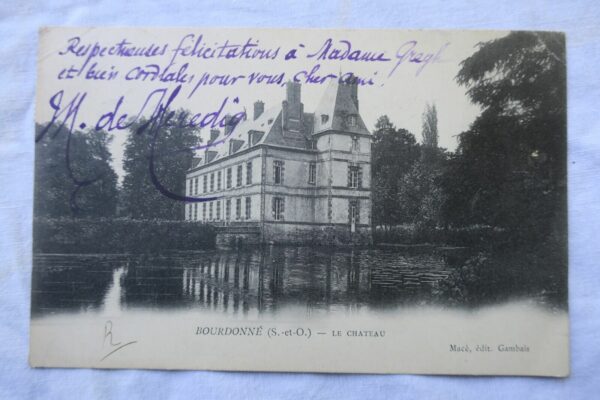 Respectueuses félicitations à Madame
et bien cordiales pour vous, cher ami.
M. de
BOURDONNÉ (S.-et-O.) — LE CHATEAU
Macé, édit. Gambais
R